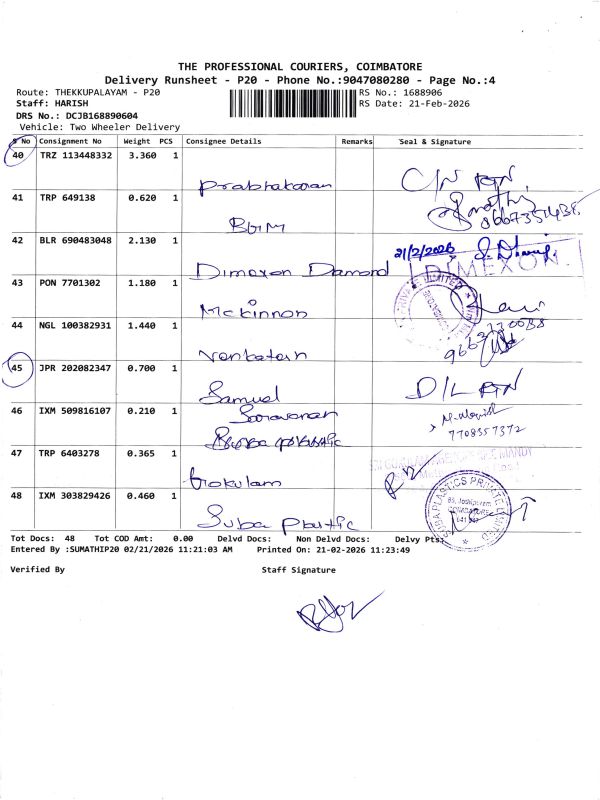 THE PROFESSIONAL COURIERS, COIMBATORE
Delivery Runsheet - P20 - Phone No.:9047080280 - Page No.:4
Route: THEKKUPALAYAM - P20
RS No.: 1688906
Staff: HARISH
RS Date: 21-Feb-2026
DRS No.: DCJB168890604
Vehicle: Two Wheeler Delivery
S No Consignment No Weight PCS Consignee Details Remarks Seal & Signature
40 TRZ 113448332 3.360 1 Prabhakaran
41 TRP 649138 0.620 1
42 BLR 690483048 2.130 1 Dimexon Damond 21/2/2026 DIMEXON
43 PON 7701302 1.180 1 Mckinnon
44 NGL 100382931 1.440 1
45 JPR 202082347 0.700 1 Samuel D/L
46 IXM 509816107 0.210 1 Saravanan
7708557372
47 TRP 6403278 0.365 1 Gokulam
48 IXM 303829426 0.460 1 Suba Plastic SUBA PLASTICS PRIVATE LIMITED
Tot Docs: 48 Tot COD Amt: 0.00 Delvd Docs: Non Delvd Docs: Delvy Pts:
Entered By :SUMATHIP20 02/21/2026 11:21:03 AM Printed On: 21-02-2026 11:23:49
Verified By Staff Signature